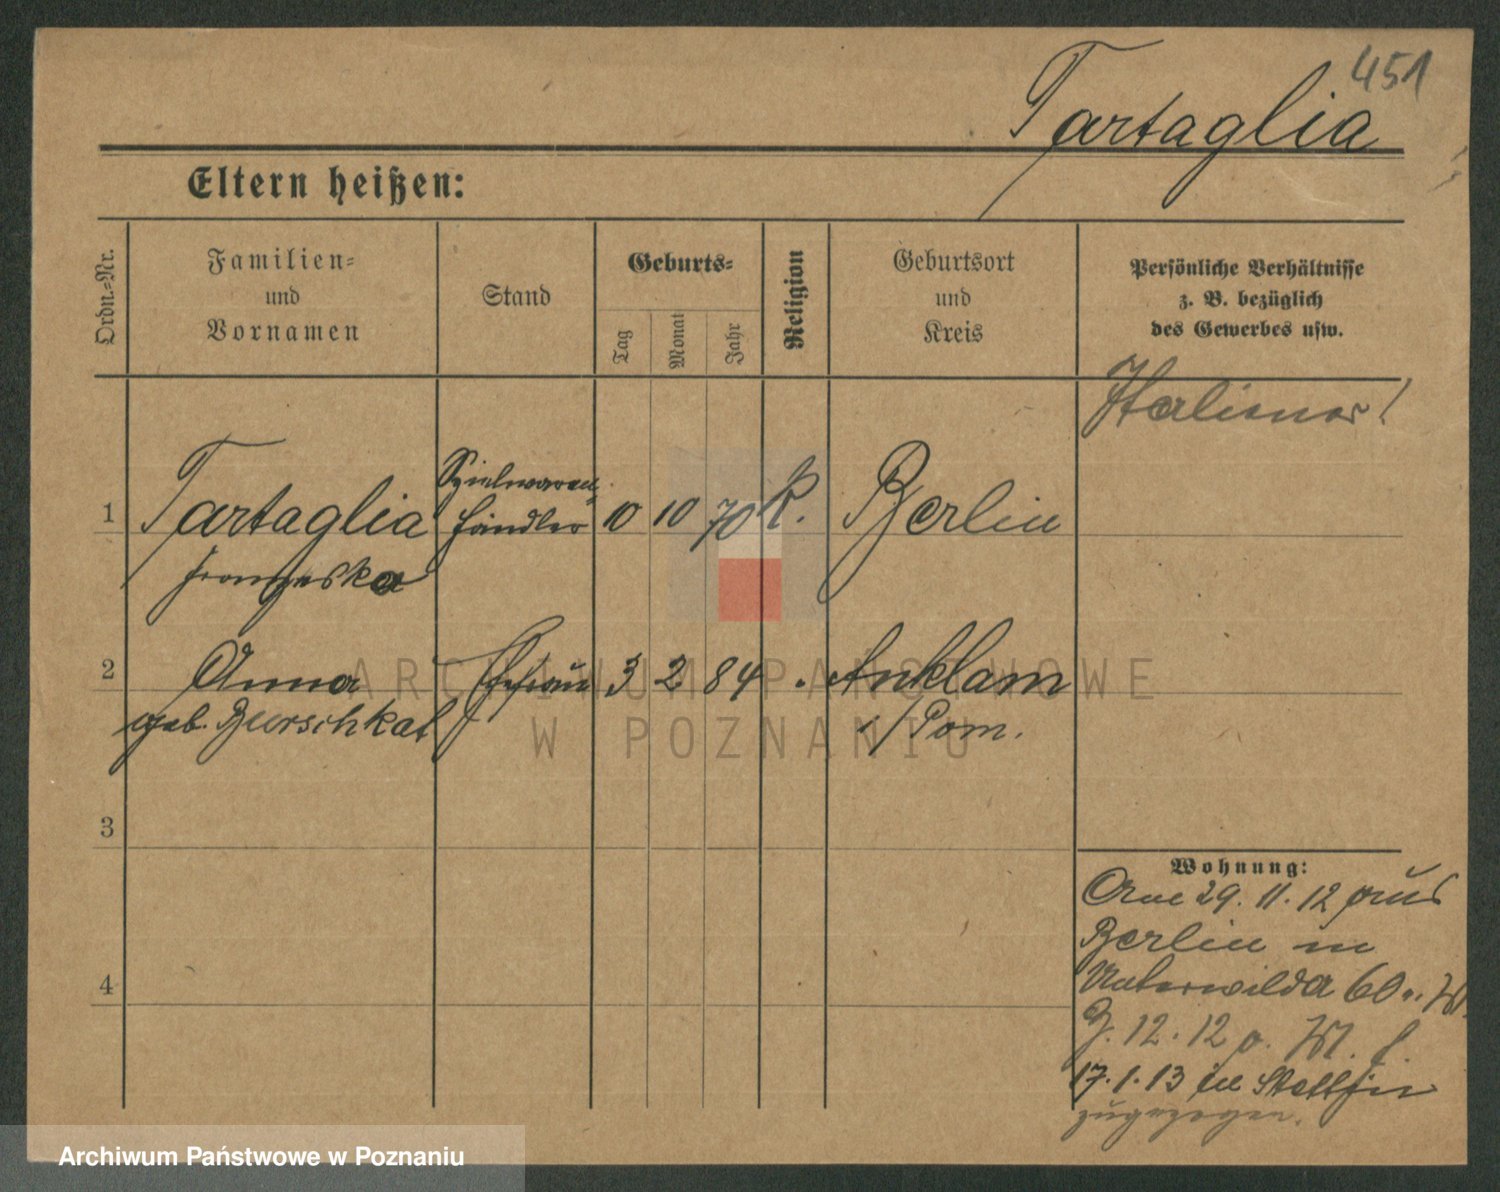 451
Tartaglia
Eltern heißen:
Ordn.-Nr.
Familien-
und
Vornamen
Stand
Geburts-
Tag
Monat
Jahr
Religion
Geburtsort
und
Kreis
Persönliche Verhältnisse
z. B. bezüglich
des Gewerbes usw.
Italiener!
1 Tartaglia Spielwaren- 10 10 70 k. Berlin
händler
Franzeska
2 Anna Ehefrau 3 2 84 . Anklam
geb. Burschkat i/Pom.
3
4
Wohnung:
29. 11. 12 aus
Berlin in
Unterwilda 60
12. 12
17. 1. 13 in Stettin
zugezogen.
ARCHIWUM PAŃSTWOWE
W POZNANIU
Archiwum Państwowe w Poznaniu